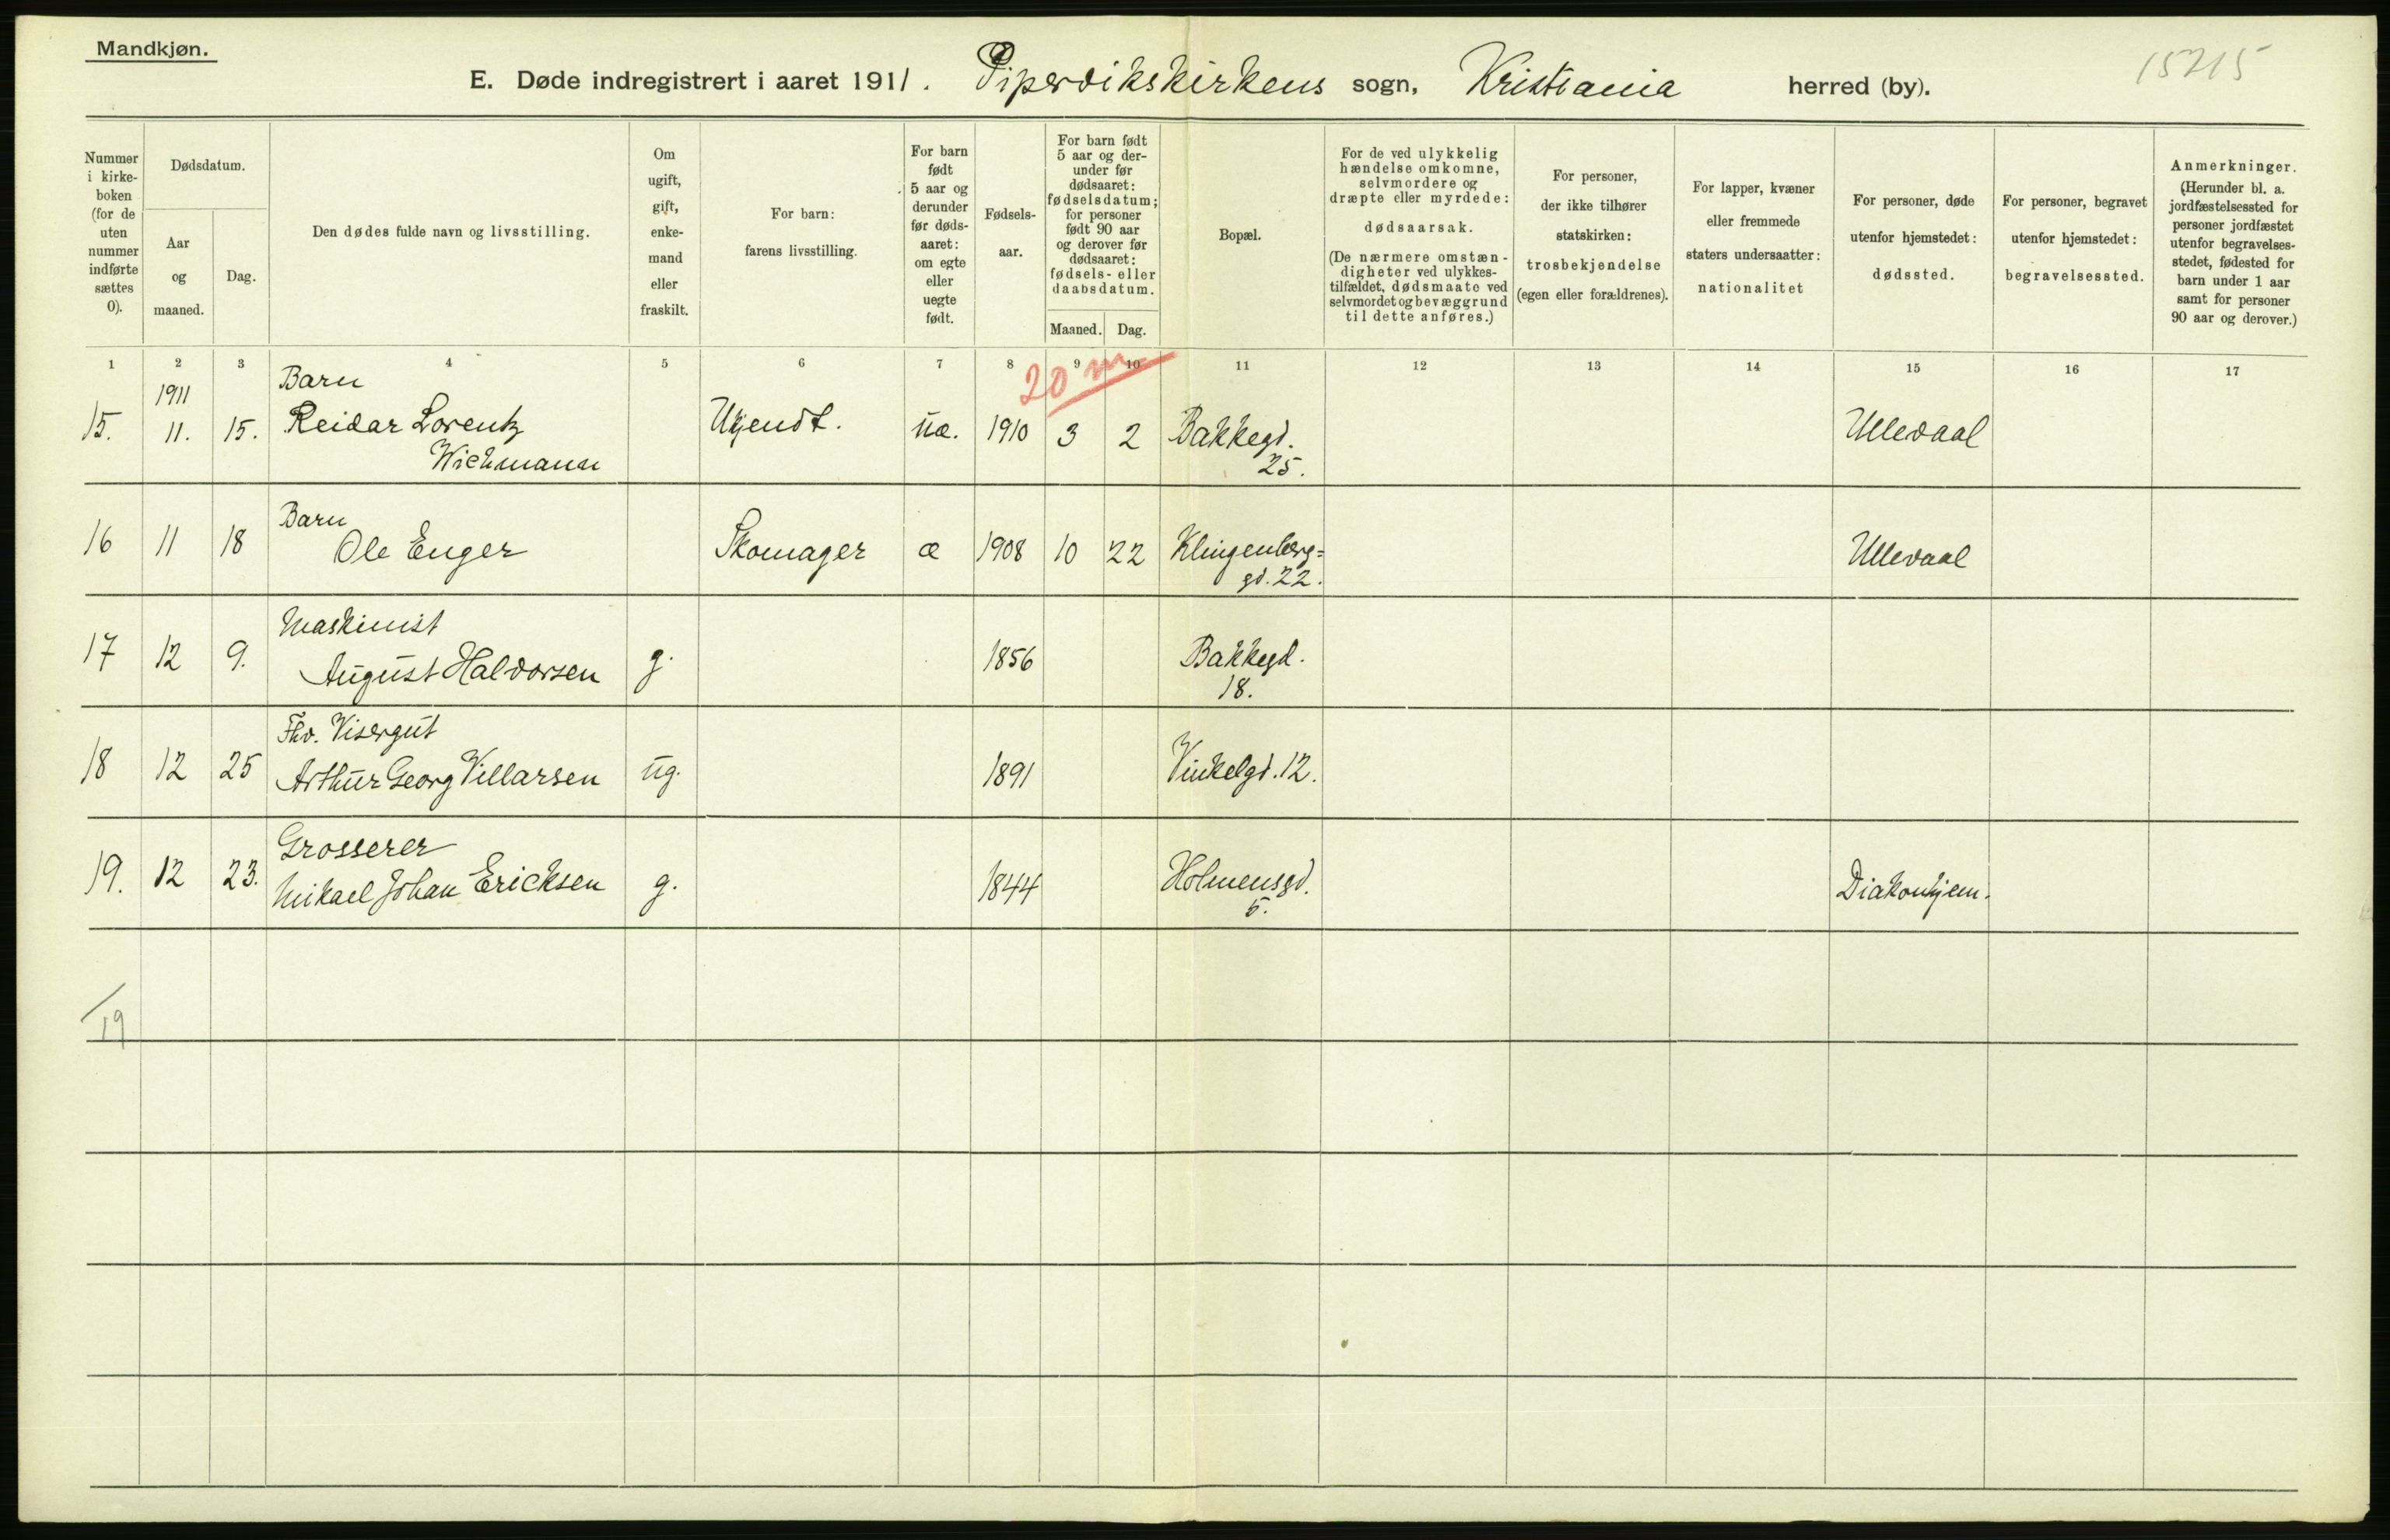 Mandkjøn.
E. Døde indregistrert i aaret 1911. Pipervikskirkens sogn, Kristiania herred (by).
15215
Nummer i kirke-boken (for de uten nummer indførte sættes 0).
Dødsdatum.
Aar og maaned.
Dag.
Den dødes fulde navn og livsstilling.
Om ugift, gift, enke-mand eller fraskilt.
For barn: farens livsstilling.
For barn født 5 aar og derunder før døds-aaret: om egte eller uegte født.
Fødsels-aar.
For barn født 5 aar og der-under før dødsaaret: fødselsdatum; for personer født 90 aar og derover før dødsaaret: fødsels- eller daabsdatum.
Maaned.
Dag.
Bopæl.
For de ved ulykkelig hændelse omkomne, selvmordere og dræpte eller myrdede: dødsaarsak. (De nærmere omstæn-digheter ved ulykkes-tilfældet, dødsmaate ved selvmordet og bevæggrund til dette anføres.)
For personer, der ikke tilhører statskirken: trosbekjendelse (egen eller forældrenes).
For lapper, kvæner eller fremmede staters undersaatter: nationalitet
For personer, døde utenfor hjemstedet: dødssted.
For personer, begravet utenfor hjemstedet: begravelsessted.
Anmerkninger. (Herunder bl. a. jordfæstelsessted for personer jordfæstet utenfor begravelses-stedet, fødested for barn under 1 aar samt for personer 90 aar og derover.)
1 2 3 4 5 6 7 8 9 10 11 12 13 14 15 16 17
20 m
1911 Barn
15. 11. 15. Reidar Lorentz Ukjendt. uæ. 1910 3 2 Bakkegd. Ullevaal
Wichmann 25.
Barn
16 11 18 Ole Enger Skomager æ 1908 10 22 Klingenberg= Ullevaal
gd. 22.
Maskinist
17 12 9. August Halvorsen g. 1856 Bakkegd.
18.
Fhv. Visergut
18 12 25 Arthur Georg Villarsen ug. 1891 Vinkelgd. 12.
Grosserer
19. 12 23. Mikael Johan Ericksen g. 1844 Holmensgd. Diakonhjem.
5.
19